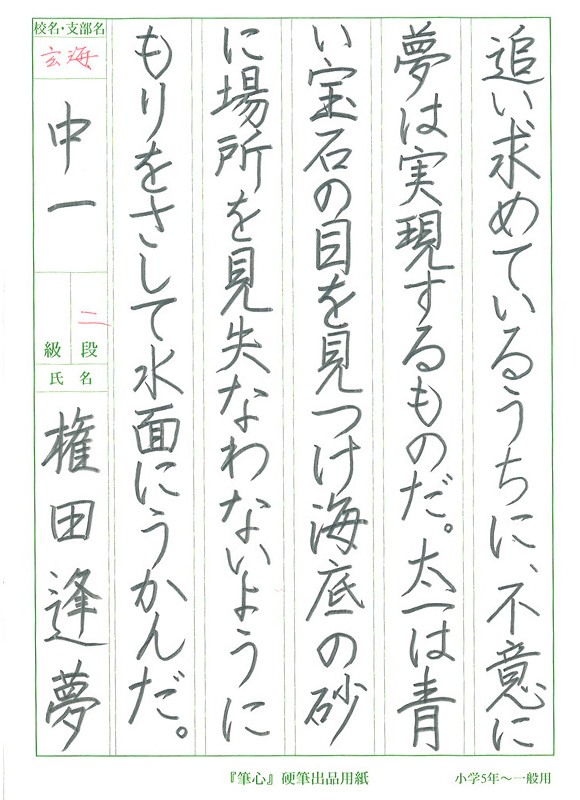 追い求めているうちに、不意に
夢は実現するものだ。太一は青
い宝石の目を見つけ海底の砂
に場所を見失なわないように
もりをさして水面にうかんだ。
校名・支部名
玄海
中一
二
級 段
氏 名
権田逢夢
『筆心』硬筆出品用紙
小学5年〜一般用